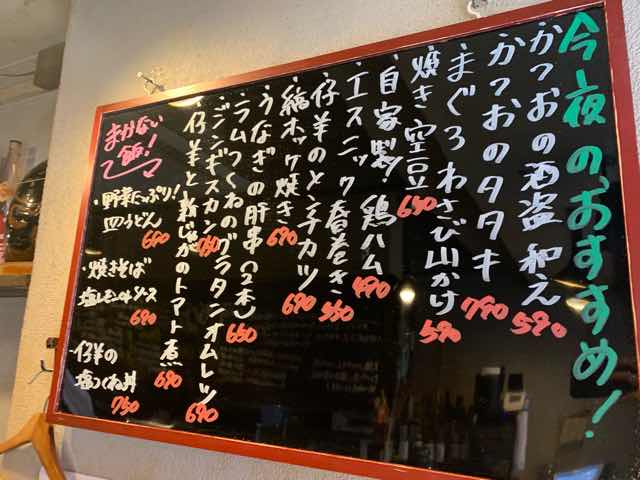 今夜のおすすめ!
・かつおの酒盗和え 590
・かつおのタタキ 790
・まぐろわさび山かけ 590
・焼き空豆 650
・自家製!鶏ハム 490
・エスニック春巻き 550
・仔羊のメンチカツ 690
・縞ホッケ焼き 690
・うなぎの肝串(2本) 650
・ラムつくねのグラタンオムレツ 690
・ジンギスカン 750
・仔羊と新じゃがのトマト煮 690
まかない飯!
・野菜たっぷり!
皿うどん 690
・焼きそば
塩レモンorソース 690
・仔羊の
塩つくね丼 750